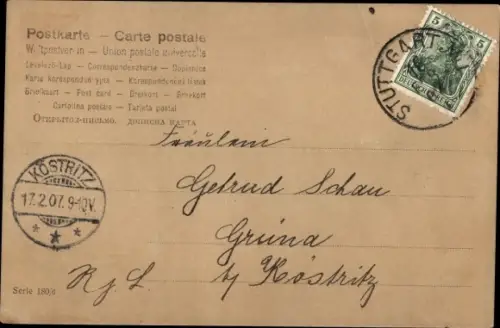 Postkarte — Carte postale
Weltpostverein — Union postale universelle
Levelező-Lap — Correspondenzkarte — Dopisnice
Karta korespondencyjna — Korespondenční lístek
Briefkaart — Post card — Brefkort — Brevkort
Cartolina postale — Tarjeta postal
Открытое письмо. ДОПИСНА КАРТА
5 5
STUTTGART
KÖSTRITZ
17.2.07. 9-10V.
Fräulein
Getrud Schau
Grüna
by Köstritz
R.j.L.
Serie 180/6